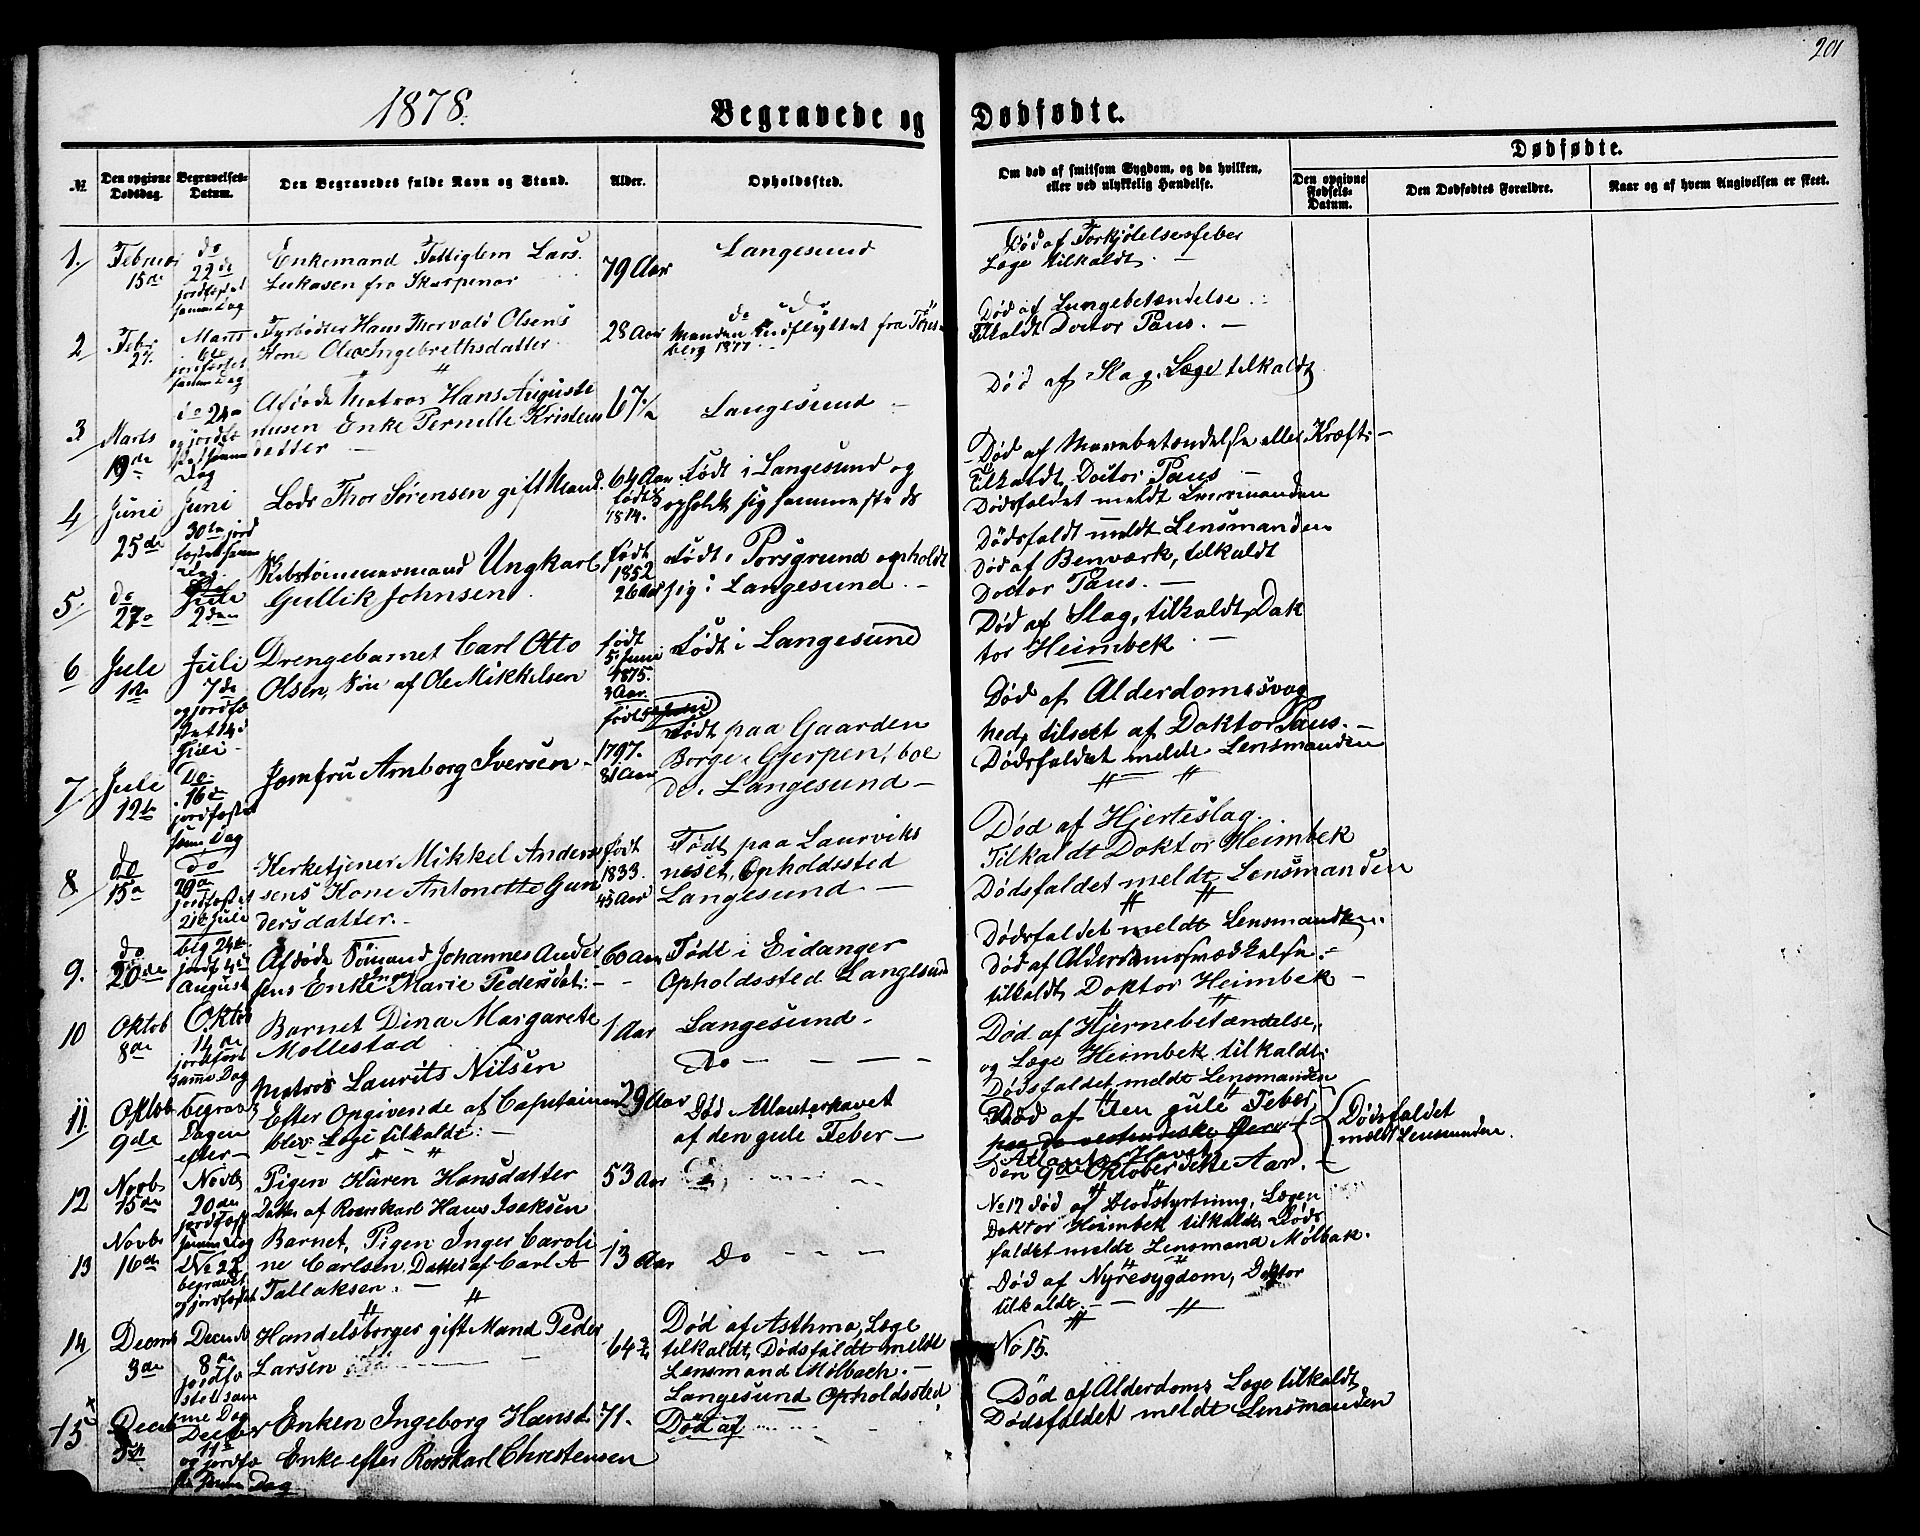 201
1878.
Begravede og Dødfødte.
Dødfødte.
№
Den opgivne Dødsdag.
Begravelses-Datum.
Den Begravedes fulde Navn og Stand.
Alder.
Opholdssted.
Om død af smitsom Sygdom, og da hvilken,
eller ved ulykkelig Hændelse.
Den opgivne Fødsels-Datum.
Den Dødfødtes Forældre.
Naar og af hvem Angivelsen er skeet.
1.
Februar
15de
do
22de
jordfæstet
samme Dag
Enkemand Fattiglem Lars
Lukasen fra Skarpenor
79 Aar
Langesund
Død af Forkjølelsesfeber
Læge tilkaldt. —
2
Febr
27.
Marts
jordfæstet
samme Dag
Fyrbøder Hans Thorvald Olsens
Kone Olea Ingebrethsdatter
28 Aar
do do
Manden indflyttet fra Tøns-
berg 1877
Død af Lungebetændelse.
tilkaldt Doctor Paus. —
3
Marts
19de
do 24de
og jordfæ
stet samme
Dag
Afdøde Matros Hans Auguste
nusen Enke Pernelle Kristens
datter —
67
Langesund —
Død af Slag, Læge tilkaldt
4
Juni
25de
Juni
30te jord
fæstet samme
Dag
Lods Thor Sørensen gift Mand.
64 Aar
født
1814.
Født i Langesund og
opholdt sig sammesteds
Død af Mavebetændelse eller Kræft —
tilkaldt Doctor Paus —
Dødsfaldet meldt Lensmanden
5.
do
27de
Juli
2den
Skibstømmermand Ungkarl
Gullik Johnsen.
Født
1852
26 Aar
Født i Porsgrund opholdt
sig i Langesund. —
Dødsfaldt meldt Lensmanden
Død af Benværk, tilkaldt
Doctor Paus. —
6
Jule
1ste
Juli
7de
og jordfæ
stet 14.
Jule
Drengebarnet Carl Otto
Olsen, Søn af Ole Mikkelsen
født
5 Juni
1875.
3 Aar.
Født i Langesund
Død af Slag, tilkaldt Dok
tor Heimbek —
7
Jule
12te
Do
16de
jordfæstet
samme Dag
Jomfru Arnborg Iversen —
født
1797.
81 Aar
Født paa Gaarden
Borge i Gjerpen, boe
de i Langesund —
Død af Alderdomssvag
hed, tilseet af Doktor Paus. —
Dødsfaldet meldt Lensmanden
8
do
15de
do
jordfæstet
21de Jule
Kerketjener Mikkel Anders
sens Kone Antonette Gun
dersdatter. —
født
1833.
45 Aar
Født paa Laurviks
neset, Opholdssted
Langesund —
Død af Hjerteslag.
Tilkaldt Doktor Heimbek
Dødsfaldet meldt Lensmanden
9.
do
20de
beg 24de
jordf 4de
August
Afdøde Sømand Johannes Ander
sens Enke Marie Pedersdat: —
60 Aar
Født i Eidanger
Opholdssted Langesund
Dødsfaldet meldt Lensmanden.
Død af Alderdomssvækkelse. —
tilkaldt Doktor Heimbek —
10
Oktob
8de
Oktob
14de
jordfæst
samme Dag
Barnet Dina Margarete
Mollestad
1 Aar
Langesund —
Død af Hjernebetændelse,
og Læge Heimbek tilkaldt.
Dødsfaldet meldt Lensmanden
11.
Oktob
9de
begravet
Dagen
efter —
Matros Laurits Nilsen
Efter Opgivende af Capitainen
blev Læge tilkaldt. —
29 Aar
Do — — —
Død Atlanterhavet
af den gule Feber —
Død af den gule Feber,
Atlanterhavet
den 9de Oktober dette Aar. —
Dødsfaldet
meldt Lensmanden.
12
Novb
15de
Novb
20de
jordfæst
samme Dag
Pigen Karen Hansdatter
Datter af Rorskarl Hans Isaksen
53 Aar
No 12 død af Blodstyrtning, Lægen
Doktor Heimbek tilkaldt, Døds
faldet meldt Lensmand Mølbak.
13
Novb
16de
begravet
og jordfæstet
Barnet, Pigen Inger Caroli
ne Carlsen, Datter af Carl A
Tallaksen. —
13 Aar
Do — — —
Død af Nyresygdom, Doktor
tilkaldt. —
14
Decmb
3de
Decmb
8de
jordfæ
stet sam
me Dag
Handelsborger gift Mand Peder
Larsen
64
Død af Asthma, Læge
tilkaldt, Dødsfaldt meldt
Lensmand Mølbach. —
15
Decmb
5te
Decbr
11te
og jordfæ
stet samme Dag
Enken Ingeborg Hansd
Enke efter Rorskarl Christensen
71.
Langesund Opholdssted
Død af
No 15.
Død af Alderdom, Læge tilkaldt,
Dødsfaldet meldt Lensmanden